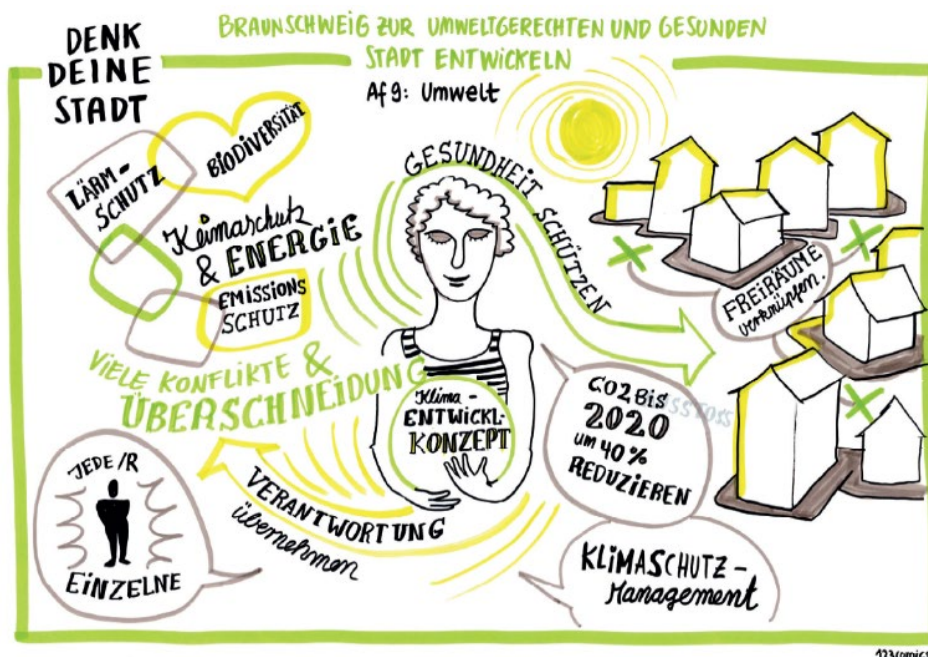 DENK
DEINE
STADT
BRAUNSCHWEIG ZUR UMWELTGERECHTEN UND GESUNDEN
STADT ENTWICKELN
Af9: Umwelt
LÄRM-
SCHUTZ
BIODIVERSITÄT
Klimaschutz
& ENERGIE
EMISSIONS
SCHUTZ
VIELE KONFLIKTE &
ÜBERSCHNEIDUNG
GESUNDHEIT SCHÜTZEN
FREIRÄUME
verknüpfen.
Klima-
ENTWICKL-
KONZEPT
CO2 BIS
2020
um 40%
REDUZIEREN
JEDE/R
EINZELNE
VERANTWORTUNG
übernehmen
KLIMASCHUTZ-
Management
123comics